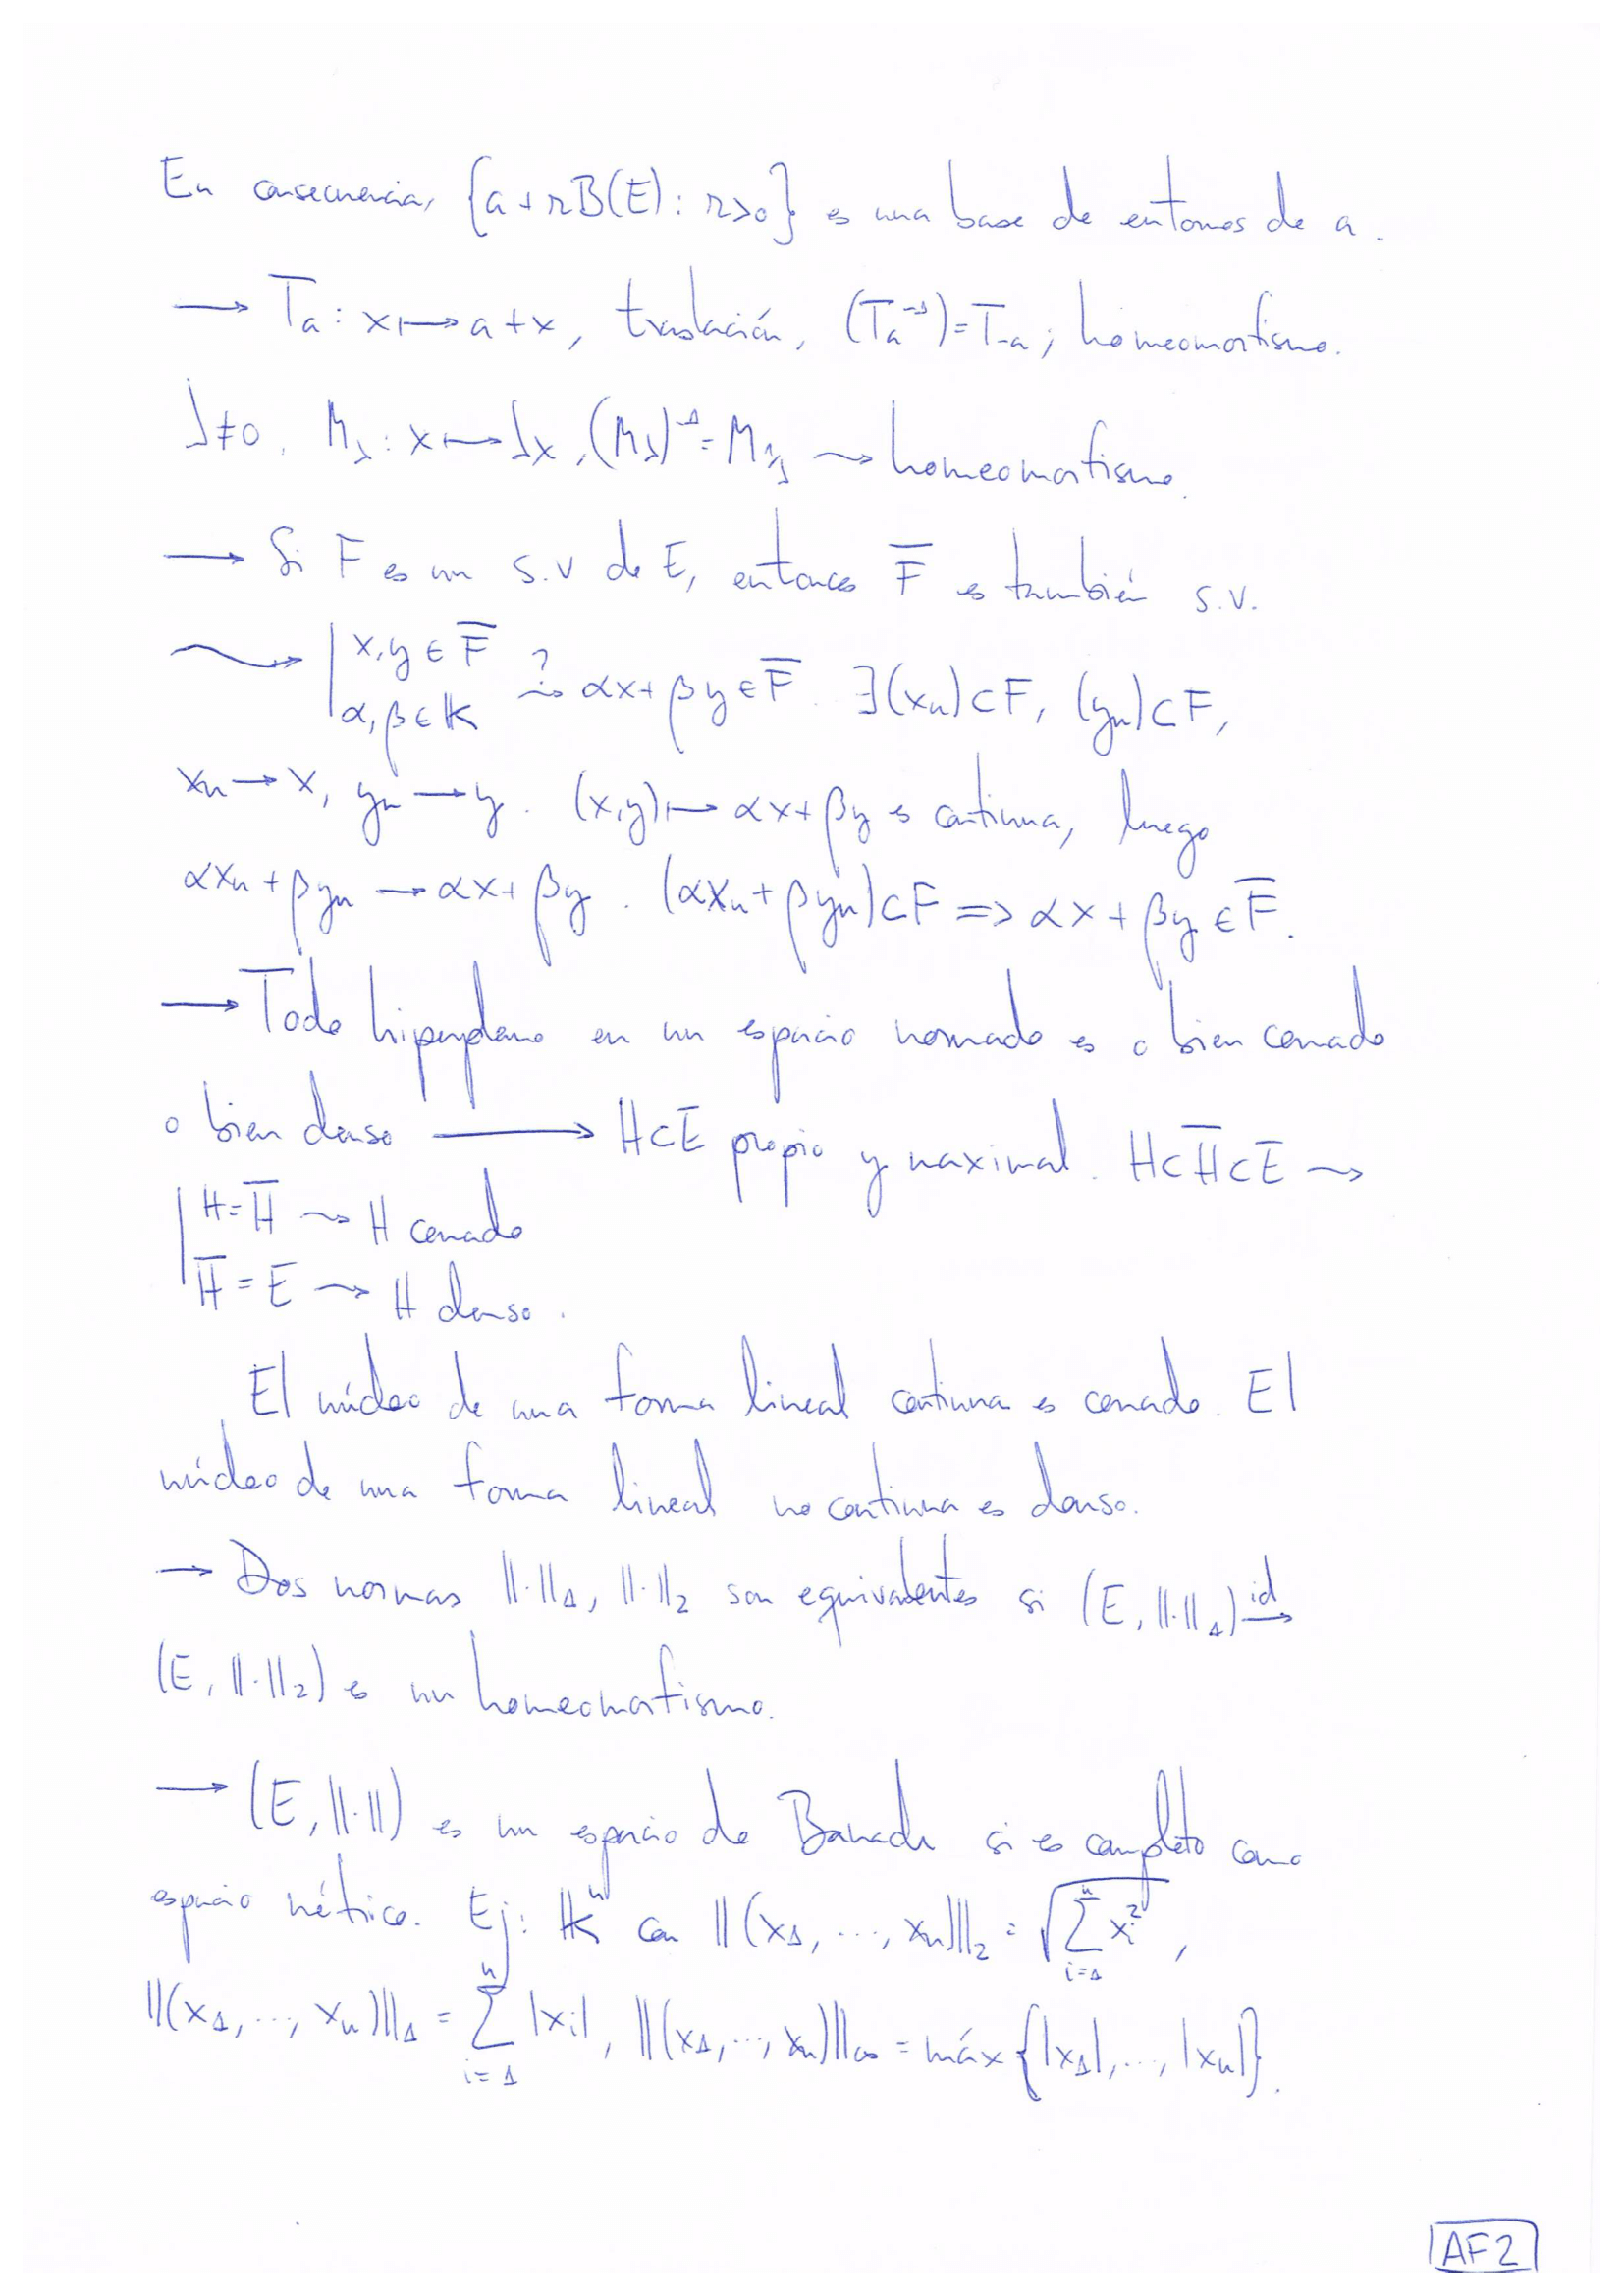 En consecuencia, {a + rB(E) : r>0} es una base de entornos de a.
→ Ta : x ↦ a+x, traslación, (Ta⁻¹) = T-a ; homeomorfismo.
λ≠0, Mλ : x ↦ λx, (Mλ)⁻¹ = M1/λ ⇝ homeomorfismo.
→ Si F es un s.v de E, entonces F̅ es también s.v.
⇝ | x,y ∈ F̅ α,β ∈ 𝕂 ?⇝ αx+βy ∈ F̅. ∃(xn) ⊂ F, (yn) ⊂ F,
xn → x, yn → y. (x,y) ↦ αx+βy es continua, luego
αxn + βyn → αx+βy. (αxn + βyn) ⊂ F => αx+βy ∈ F̅.
→ Todo hiperplano en un espacio normado es o bien cerrado
o bien denso ⟶ H⊂E propio y maximal. H⊂H̅⊂E ⇝
| H=H̅ ⇝ H cerrado
| H̅=E ⇝ H denso.
El núcleo de una forma lineal continua es cerrado. El
núcleo de una forma lineal no continua es denso.
→ Dos normas ||·||₁, ||·||₂ son equivalentes si (E, ||·||₁) id→
(E, ||·||₂) es un homeomorfismo.
→ (E, ||·||) es un espacio de Banach si es completo como
espacio métrico. Ej: 𝕂ⁿ con ||(x₁, ..., xn)||₂ = √(∑_{i=1}^{n} xi²),
||(x₁, ..., xn)||₁ = ∑_{i=1}^{n} |xi|, ||(x₁, ..., xn)||∞ = máx{|x₁|, ..., |xn|}.
AF2